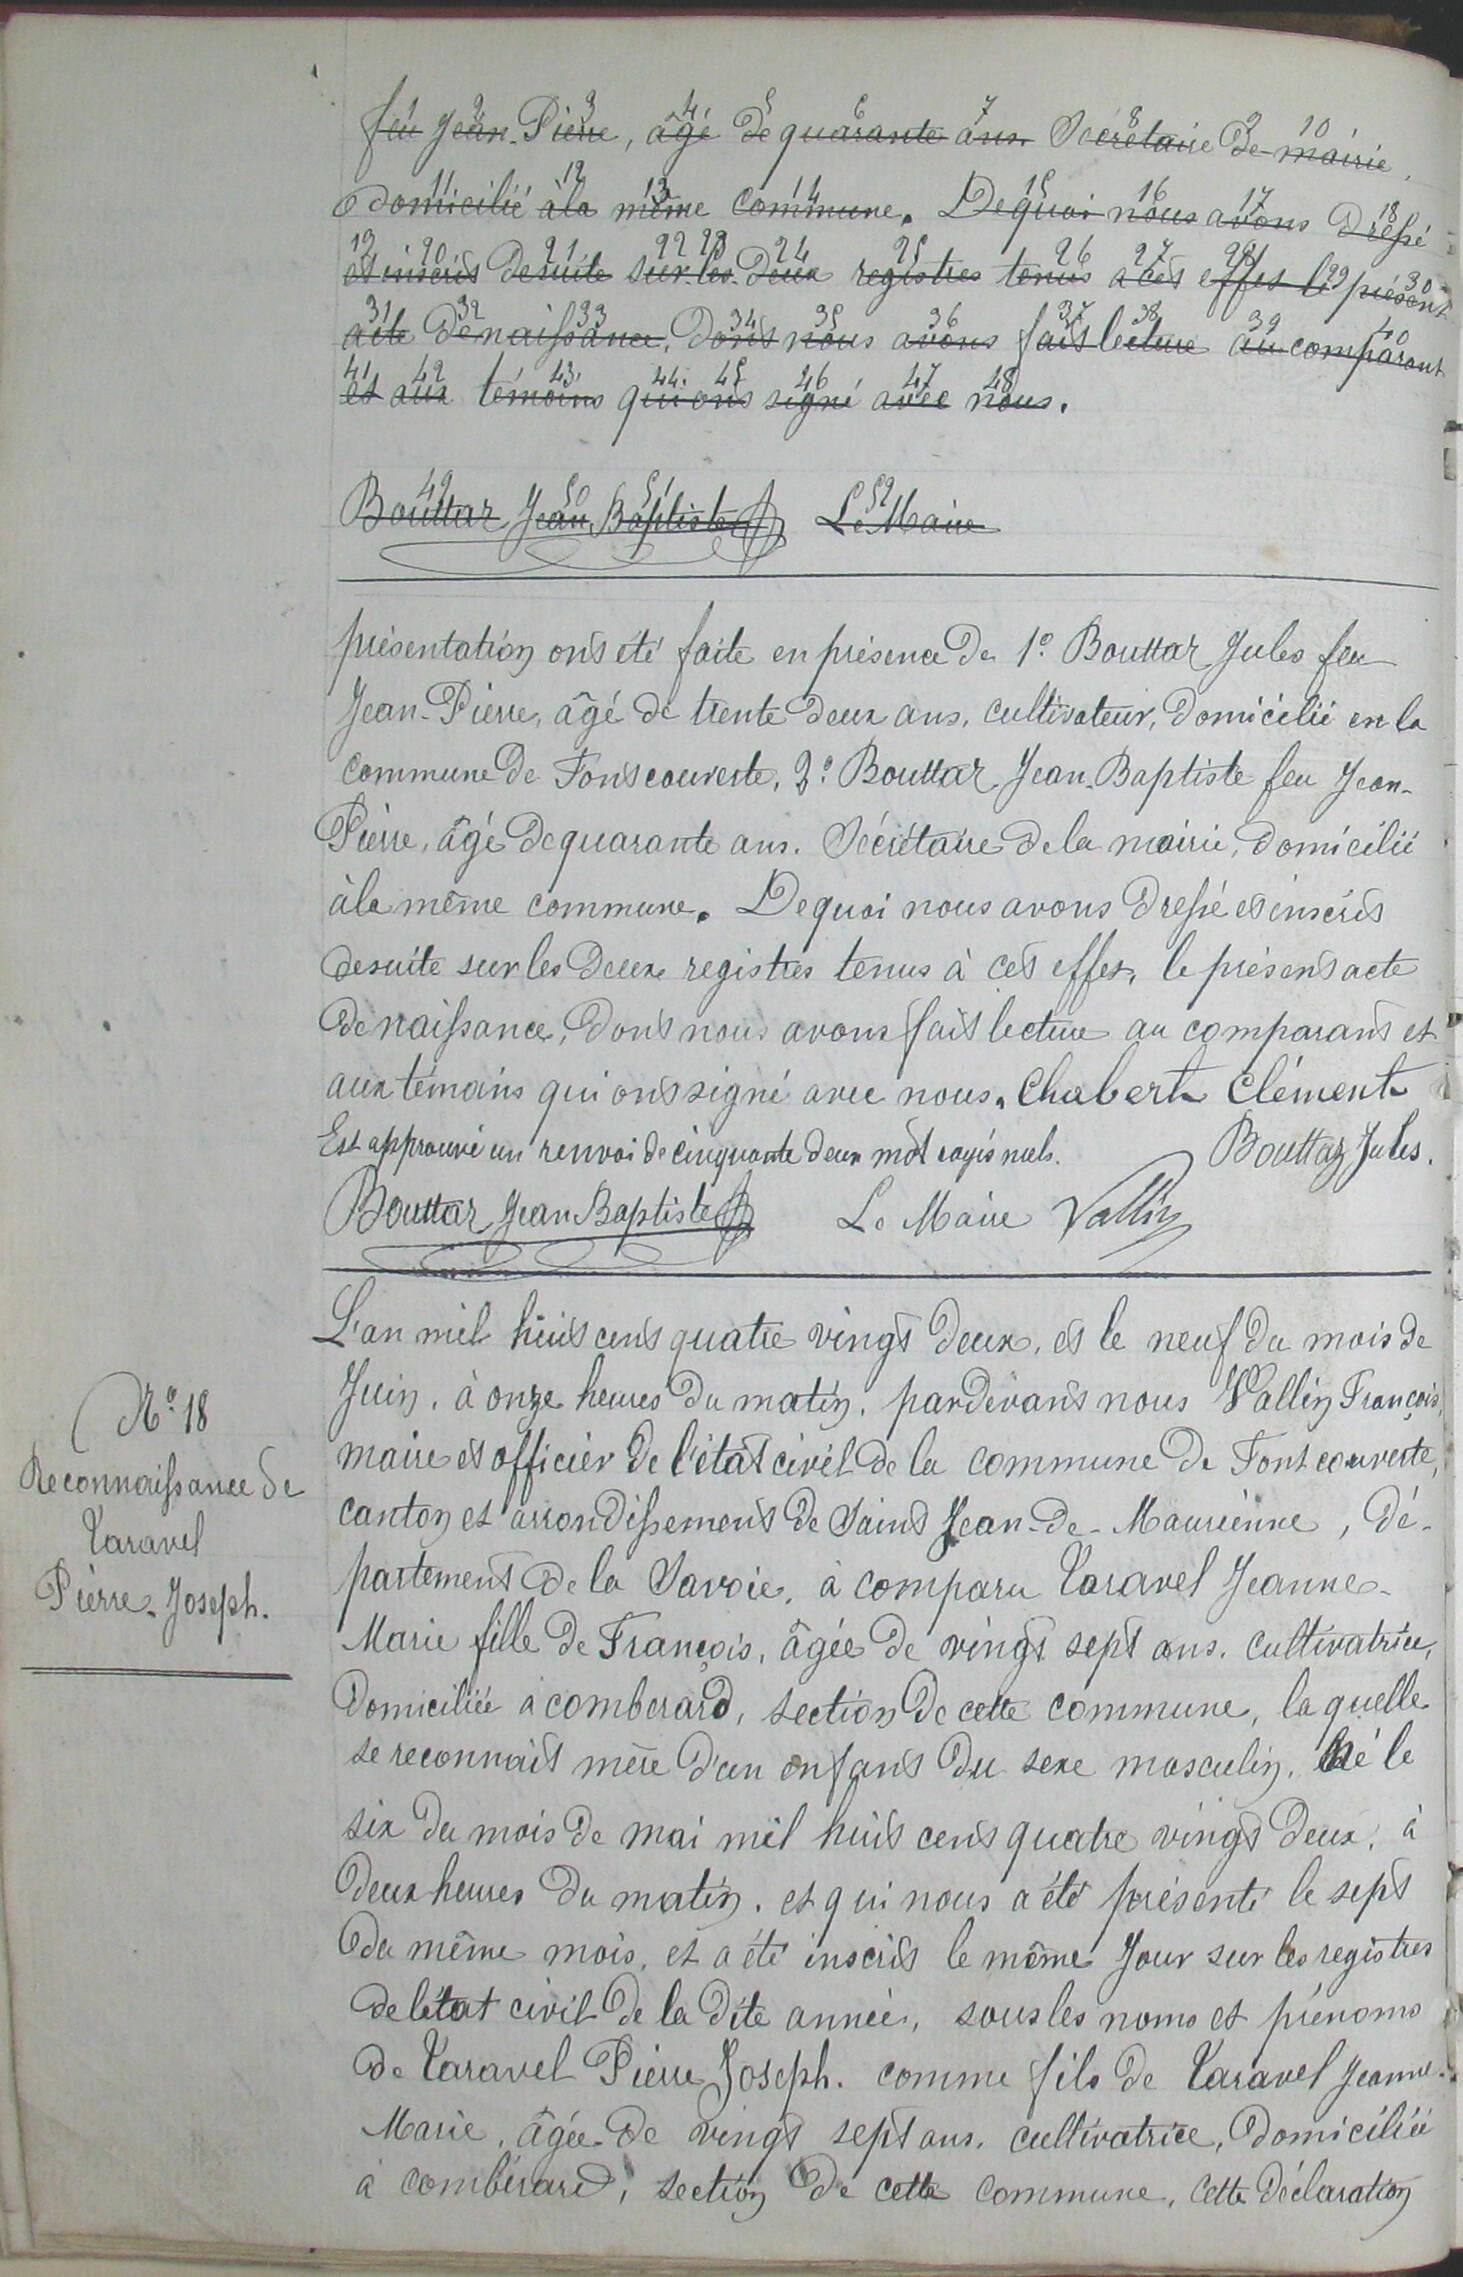 feu Jean-Pierre, âgé de quarante ans. Sécrétaire de mairie,
1 2 3 4 5 6 7 8 9 10
domicilié à la même commune. De quoi nous avons dressé
11 12 13 14 15 16 17 18
et inscrit de suite sur les deux registres tenus à cet effet le présent
19 20 21 22 23 24 25 26 27 28 29 30
acte de naissance, dont nous avons fait lecture au comparant
31 32 33 34 35 36 37 38 39 40
et aux témoins qui ont signé avec nous.
41 42 43 44 45 46 47 48
Bouttaz Jean Baptiste Le Maire
49 50 51 52
présentation ont été faite en présence de 1º Bouttaz Jules feu
Jean-Pierre, âgé de trente deux ans, cultivateur, domicilié en la
commune de Fontcouverte, 2º Bouttaz Jean-Baptiste feu Jean-
Pierre, âgé de quarante ans. Sécrétaire de la mairie, domicilié
à la même commune. De quoi nous avons dressé et inscrit
de suite sur les deux registres tenus à cet effet, le présent acte
de naissance, dont nous avons fait lecture au comparant et
aux témoins qui ont signé avec nous. Chabert Clément
Est approuvé un renvoi de cinquante deux mot rayés nuls. Bouttaz Jules.
Bouttaz Jean Baptiste Le Maire Vallin
L'an mil huit cent quatre vingt deux, et le neuf du mois de
Juin, à onze heures du matin, pardevant nous Vallin François,
maire et officier de l'état civil de la commune de Fontcouverte,
Nº 18
Reconnaissance de
Taravel
Pierre-Joseph.
canton et arrondissement de Saint Jean-de-Maurienne, dé-
partement de la Savoie, à comparu Taravel Jeanne-
Marie fille de François, âgée de vingt sept ans, cultivatrice,
domiciliée à comberard, section de cette commune, la quelle
se reconnait mère d'un enfant du sexe masculin, né le
six du mois de mai mil huit cent quatre vingt deux, à
deux heures du matin, et qui nous a été présenté le sept
du même mois, et a été inscrit le même Jour sur les registres
de l'état civil de la dite année, sous les noms et prénoms
de Taravel Pierre Joseph. comme fils de Taravel Jeanne-
Marie, âgée de vingt sept ans, cultivatrice, domiciliée
à combérard, section de cette commune, cette déclaration